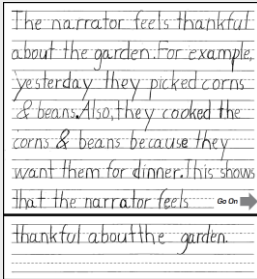 The narrator feels thankful
about the garden. For example,
yesterday they picked corns
& beans. Also, they cooked the
corns & beans because they
want them for dinner. This shows
that the narrator feels Go On
thankful about the garden.